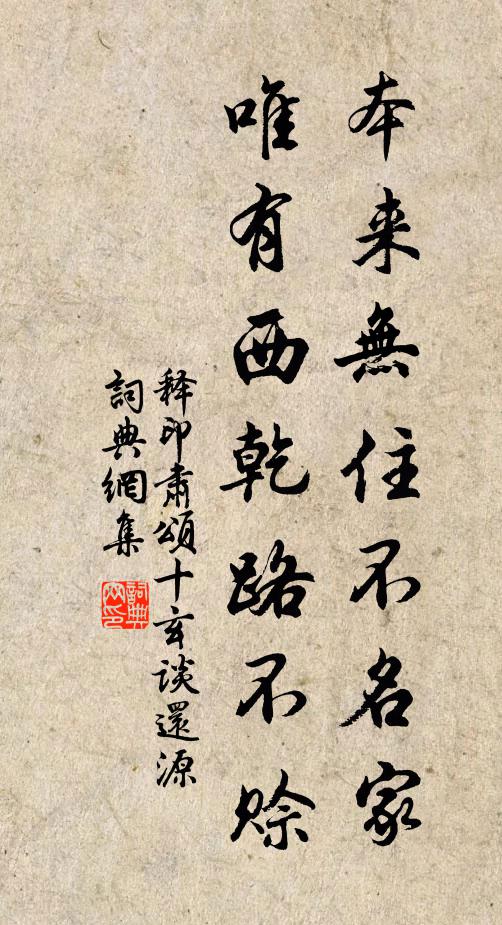 本来無住不名家
唯有西乾路不賒
释印肅頌十玄談還源
詞典網集
詞典网印